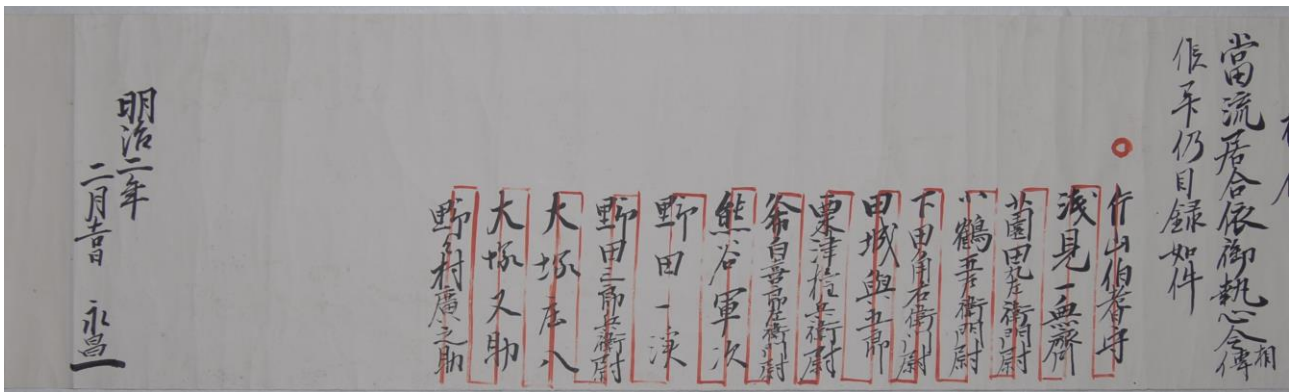 當流居合依御執心令相傳
候畢仍目録如件
片山伯耆守
浅見一無齋
薗田丸左衛門尉
小鶴吾左衛門尉
下田角右衛門尉
田城與五郎
栗津権兵衛尉
谷口喜左衛門尉
熊谷軍次
野田一渓
野田三郎兵衛尉
大塚庄八
大塚又助
野々村廣之助
明治二年
二月吉日 永昌